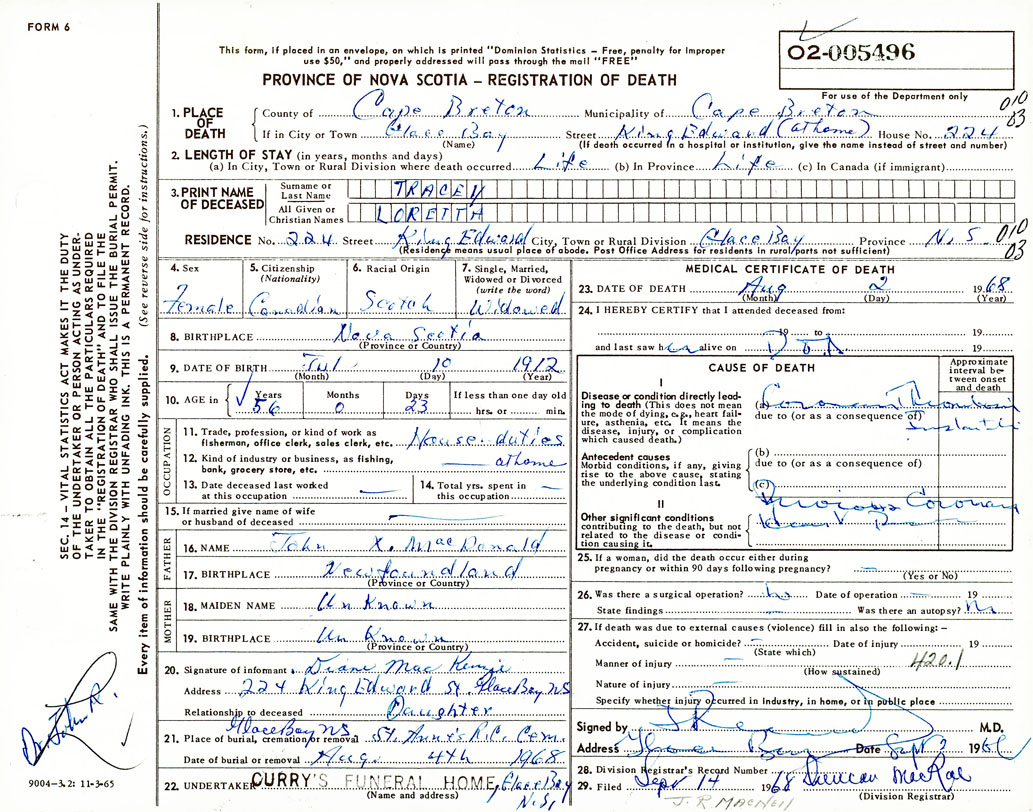 FORM 6
This form, if placed in an envelope, on which is printed "Dominion Statistics – Free, penalty for improper
use $50," and properly addressed will pass through the mail "FREE"
PROVINCE OF NOVA SCOTIA – REGISTRATION OF DEATH
02-005496
For use of the Department only
010
03
1. PLACE OF DEATH
County of Cape Breton Municipality of Cape Breton
If in City or Town Glace Bay Street King Edward (at home) House No. 224
(Name) (If death occurred in a hospital or institution, give the name instead of street and number)
2. LENGTH OF STAY (in years, months and days)
(a) In City, Town or Rural Division where death occurred Life (b) In Province Life (c) In Canada (if immigrant)
3. PRINT NAME OF DECEASED
Surname or Last Name TRACEY
All Given or Christian Names LORETTA
RESIDENCE No. 224 Street King Edward City, Town or Rural Division Glace Bay Province N.S.
(Residence means usual place of abode. Post Office Address for residents in rural parts not sufficient)
010
03
4. Sex
Female
5. Citizenship
(Nationality)
Canadian
6. Racial Origin
Scotch
7. Single, Married,
Widowed or Divorced
(write the word)
Widowed
8. BIRTHPLACE Nova Scotia
(Province or Country)
9. DATE OF BIRTH Jul 10 1912
(Month) (Day) (Year)
10. AGE in
Years Months Days If less than one day old
56 0 23 hrs. or min.
OCCUPATION
11. Trade, profession, or kind of work as
fisherman, office clerk, sales clerk, etc. House-duties
12. Kind of industry or business, as fishing,
bank, grocery store, etc. at home
13. Date deceased last worked
at this occupation
14. Total yrs. spent in
this occupation
15. If married give name of wife
or husband of deceased
FATHER
16. NAME John X. MacDonald
17. BIRTHPLACE Newfoundland
(Province or Country)
MOTHER
18. MAIDEN NAME Un Known
19. BIRTHPLACE Un Known
(Province or Country)
20. Signature of informant Diane MacKenzie
Address 224 King Edward St. Glace Bay NS
Relationship to deceased Daughter
Glace Bay NS
21. Place of burial, cremation or removal St. Ann's R.C. Cem.
Date of burial or removal Aug. 4th 1968
22. UNDERTAKER CURRY'S FUNERAL HOME, Glace Bay
(Name and address) N.S.
MEDICAL CERTIFICATE OF DEATH
23. DATE OF DEATH Aug 2 1968
(Month) (Day) (Year)
24. I HEREBY CERTIFY that I attended deceased from:
19 to 19
and last saw her alive on DOA 19
CAUSE OF DEATH
Approximate interval between onset and death
I
Disease or condition directly leading to death (This does not mean the mode of dying, e.g., heart failure, asthenia, etc. It means the disease, injury, or complication which caused death.)
(a) Coronary Thrombosis
due to (or as a consequence of)
Antecedent causes
Morbid conditions, if any, giving rise to the above cause, stating the underlying condition last.
(b)
due to (or as a consequence of)
(c)
II
Other significant conditions
contributing to the death, but not related to the disease or condition causing it.
Previous Coronary
25. If a woman, did the death occur either during
pregnancy or within 90 days following pregnancy?
(Yes or No)
26. Was there a surgical operation? No Date of operation 19
State findings Was there an autopsy? No
27. If death was due to external causes (violence) fill in also the following: –
Accident, suicide or homicide? Date of injury 19
(State which)
Manner of injury 420.1
(How sustained)
Nature of injury
Specify whether injury occurred in industry, in home, or in public place
Signed by M.D.
Address Glace Bay Date Sept 2 1968
28. Division Registrar's Record Number
29. Filed Sept 14 1968 Duncan MacRae
(Division Registrar)
J.R. MACNEIL
SEC. 14 – VITAL STATISTICS ACT MAKES IT THE DUTY
OF THE UNDERTAKER OR PERSON ACTING AS UNDER-
TAKER TO OBTAIN ALL THE PARTICULARS REQUIRED
IN THE "REGISTRATION OF DEATH" AND TO FILE THE
SAME WITH THE DIVISION REGISTRAR WHO SHALL ISSUE THE BURIAL PERMIT.
WRITE PLAINLY WITH UNFADING INK. THIS IS A PERMANENT RECORD.
Every item of information should be carefully supplied. (See reverse side for instructions.)
Dr. John R.
9004-3.2: 11-3-65